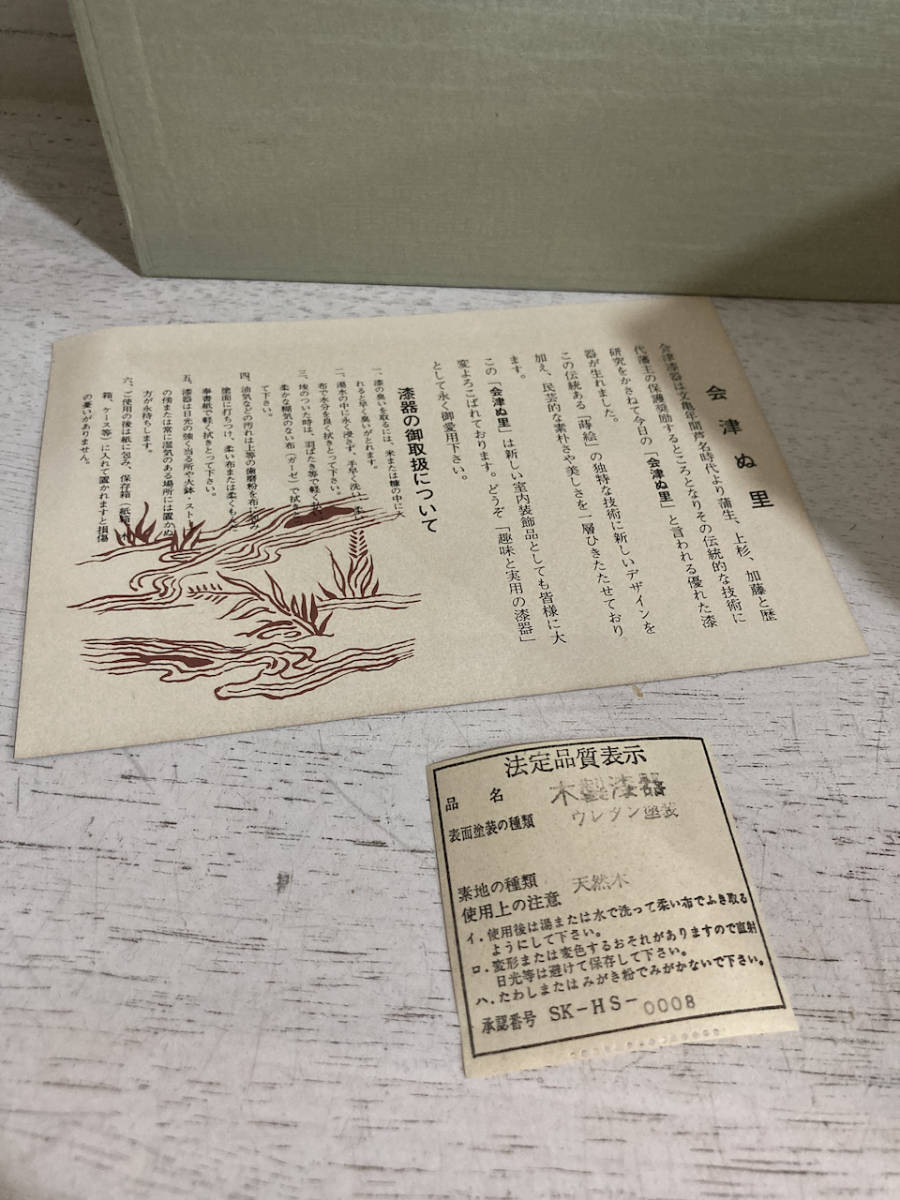 会津ぬ里
会津漆器は文亀年間芦名時代より蒲生、上杉、加藤と歴
代藩主の保護奨励するところとなりその伝統的な技術に
研究をかさねて今日の「会津ぬ里」と言われる優れた漆
器が生れました。
この伝統ある「蒔絵」の独特な技術に新しいデザインを
加え、民芸的な素朴さや美しさを一層ひきたたせており
ます。
この「会津ぬ里」は新しい室内装飾品としても皆様に大
変よろこばれております。どうぞ「趣味と実用の漆器」
として永く御愛用下さい。
漆器の御取扱について
一、漆の臭いを取るには、米または糠の中に入
れると早く臭いがとれます。
二、湯水の中に永く浸さず、手早く洗い、柔い
布で水分を良く拭きとって下さい。
三、埃のついた時は、羽ばたき等で軽く払い
柔かな糊気のない布(ガーゼ)で拭きとっ
て下さい。
四、油気などの汚れは上等の歯磨粉を布に包み
塗面に打ちつけ、柔い布または柔くもんだ
奉書紙で軽く拭きとって下さい。
五、漆器は日光の強く当る所や火鉢・ストーブ
の傍または常に湿気のある場所には置かぬ
方が永持ちします。
六、ご使用の後は紙に包み、保存箱(紙箱、木
箱、ケース等)に入れて置かれますと損傷
の憂いがありません。
法定品質表示
品名 木製漆器
表面塗装の種類 ウレタン塗装
素地の種類 天然木
使用上の注意
イ.使用後は湯または水で洗って柔い布でふき取る
ようにして下さい。
ロ.変形または変色するおそれがありますので直射
日光等は避けて保存して下さい。
ハ.たわしまたはみがき粉でみがかないで下さい。
承認番号 SK-HS-0008